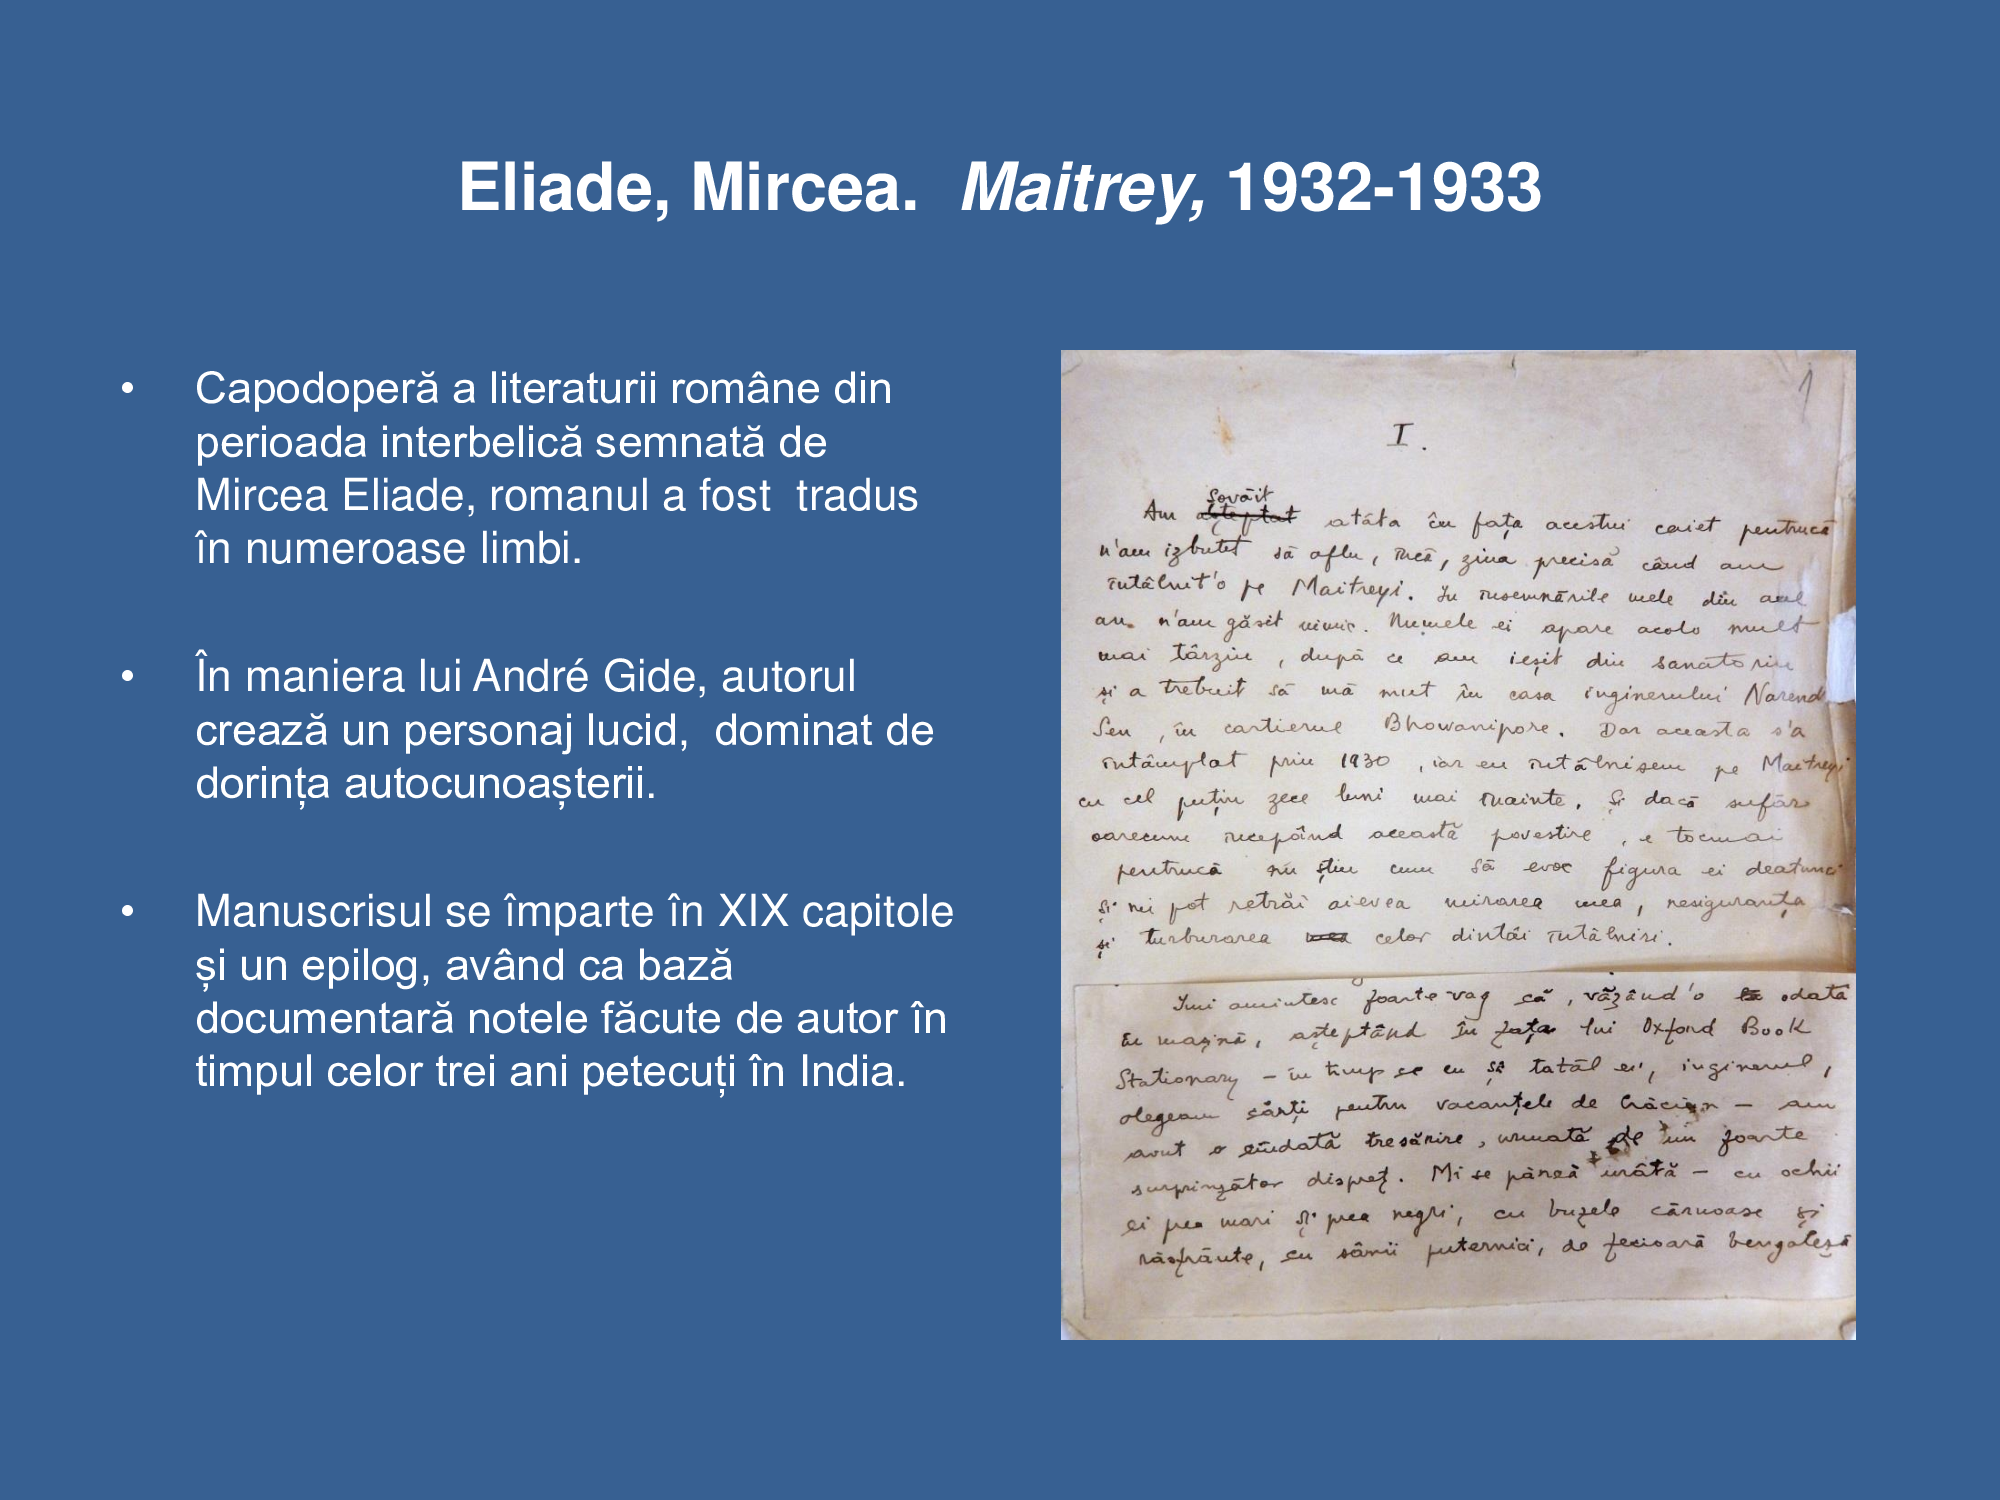 Eliade, Mircea. Maitrey, 1932-1933
• Capodoperă a literaturii române din
perioada interbelică semnată de
Mircea Eliade, romanul a fost tradus
în numeroase limbi.
• În maniera lui André Gide, autorul
crează un personaj lucid, dominat de
dorința autocunoașterii.
• Manuscrisul se împarte în XIX capitole
și un epilog, având ca bază
documentară notele făcute de autor în
timpul celor trei ani petecuți în India.
1
I.
șovăit
Am așteptat atâta în fața acestui caiet pentrucă
n'am izbutit să aflu, încă, ziua precisă când am
întâlnit'o pe Maitreyi. In însemnările mele din acel
an n'am găsit nimic. Numele ei apare acolo mult
mai târziu, după ce am ieșit din sanatoriu
și a trebuit să mă mut în casa inginerului Narend
Sen, în cartierul Bhowanipore. Dar aceasta s'a
întâmplat prin 1930, iar eu întâlnisem pe Maitreyi
cu cel puțin zece luni mai înainte. Și dacă sufăr
oarecum începând această povestire, e tocmai
pentrucă nu știu cum să evoc figura ei deatunci
și nu pot retrăi aievea mirarea mea, nesiguranța
și turburarea celor dintâi întâlniri.
Imi amintesc foarte vag că, văzând'o odată
în mașină, așteptând în fața lui Oxford Book
Stationary – în timp ce eu și tatăl ei, inginerul,
alegeam cărți pentru vacanțele de Crăciun – am
avut o ciudată tresărire, urmată de un foarte
surprinzător dispreț. Mi se părea urâtă – cu ochii
ei prea mari și prea negri, cu buzele cărnoase și
răsfrânte, cu sânii puternici, de fecioară bengaleză